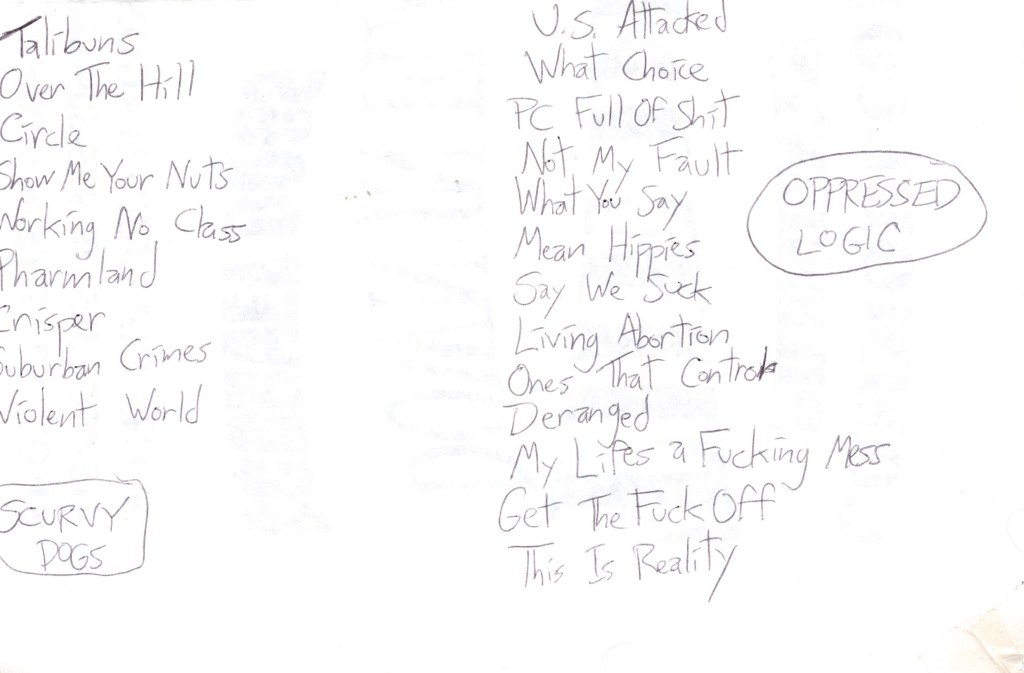 Talibuns
Over The Hill
Circle
Show Me Your Nuts
Working No Class
Pharmland
Crisper
Suburban Crimes
Violent World
SCURVY
DOGS
U.S. Attacked
What Choice
PC Full Of Shit
Not My Fault
What You Say
Mean Hippies
Say We Suck
Living Abortion
Ones That Control
Deranged
My Lifes a Fucking Mess
Get The Fuck Off
This Is Reality
OPPRESSED
LOGIC